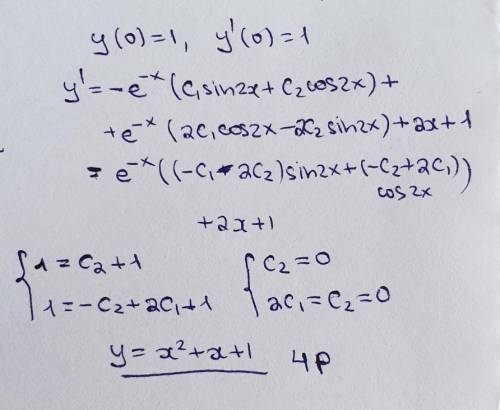 y(0)=1, y'(0)=1
y' = -e^{-x}(c₁sin2x+c₂cos2x)+
+e^{-x}(2c₁cos2x-2c₂sin2x)+2x+1
= e^{-x}((-c₁-2c₂)sin2x+(-c₂+2c₁))
cos2x
+2x+1
{1=c₂+1 {c₂=0
{1=-c₂+2c₁+1 {2c₁=c₂=0
y=x²+x+1 4p